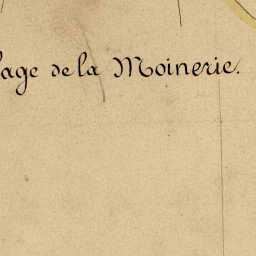 lage de la Moinerie.